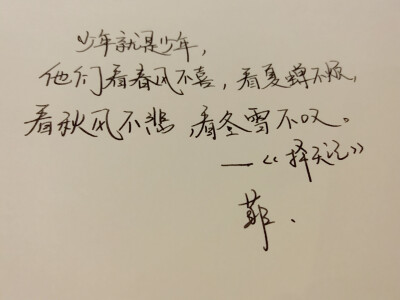 少年就是少年,
他们看春风不喜,看夏蝉不烦,
看秋风不悲,看冬雪不叹。
—《择天记》